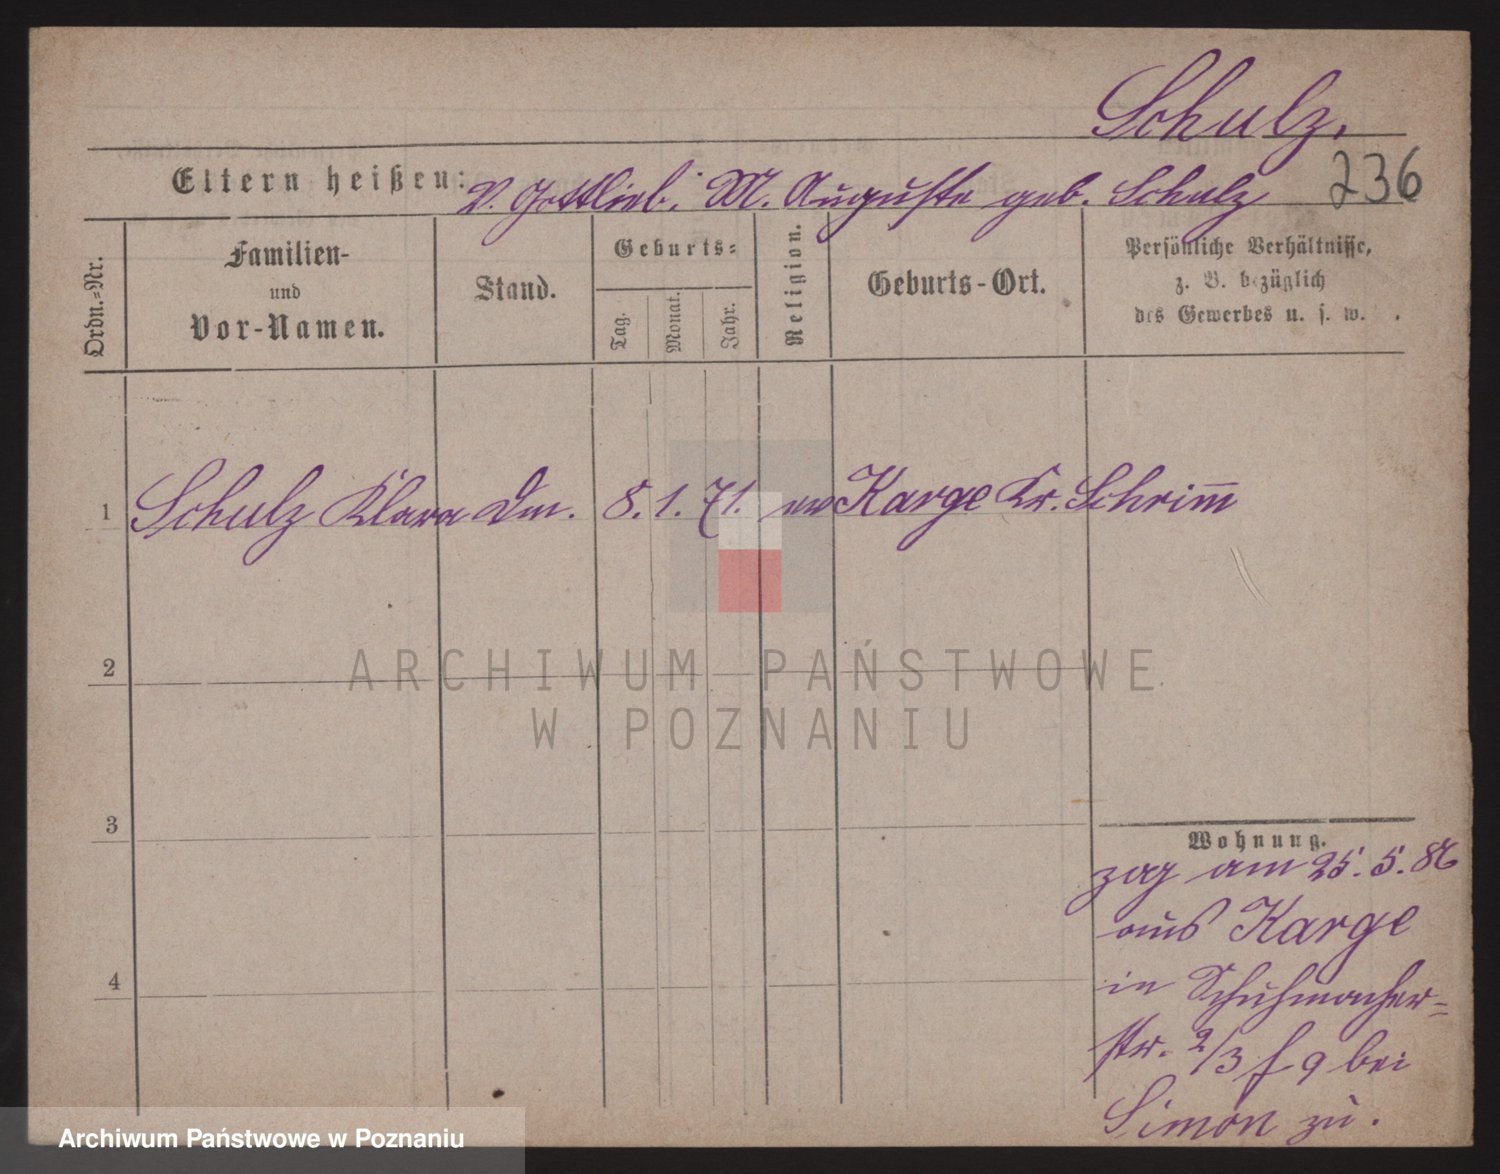 Schulz.
236
Eltern heißen: V. Gottlieb. M. Auguste geb. Schulz
Ordn.-Nr.
Familien-
und
Vor-Namen.
Stand.
Geburts-
Tag.
Monat.
Jahr.
Religion.
Geburts-Ort.
Persönliche Verhältnisse,
z. B. bezüglich
des Gewerbes u. s. w.
1 Schulz Klara Dm. 8. 1. 71. ev Karge Kr. Schrimm
2
3
4
Wohnung.
zog am 25. 5. 86
aus Karge
in Schuhmacher-
str. 2/3 f 9 bei
Simon zu.
ARCHIWUM PAŃSTWOWE
W POZNANIU
Archiwum Państwowe w Poznaniu